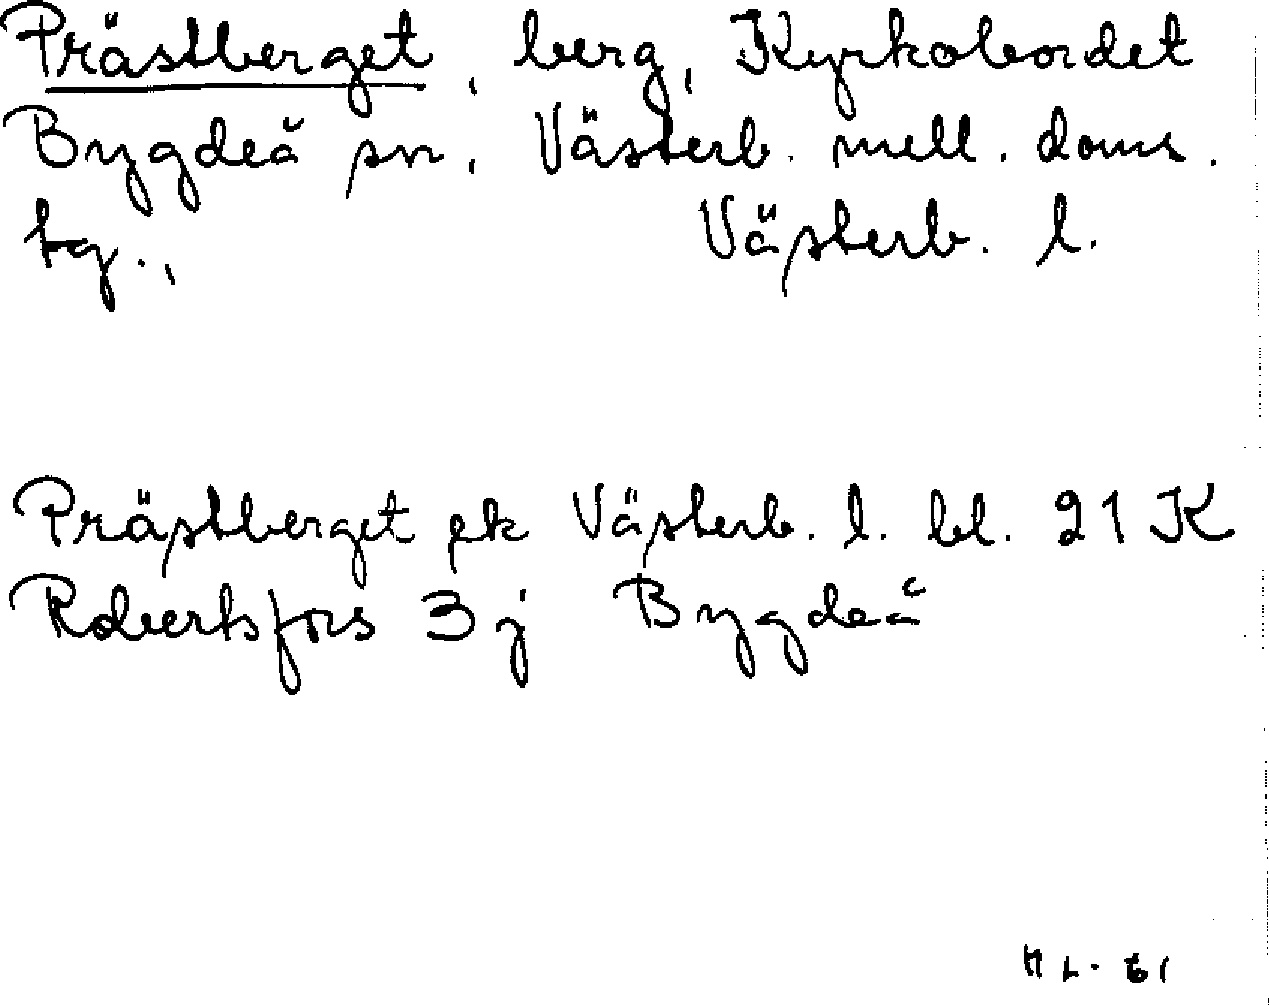 Prästberget, berg, Kyrkobordet
Bygdeå sn, Västerb. mell. doms.
tg., Västerb. l.
Prästberget ek Västerb. l. bl. 21 K
Robertsfors 3 j Bygdeå